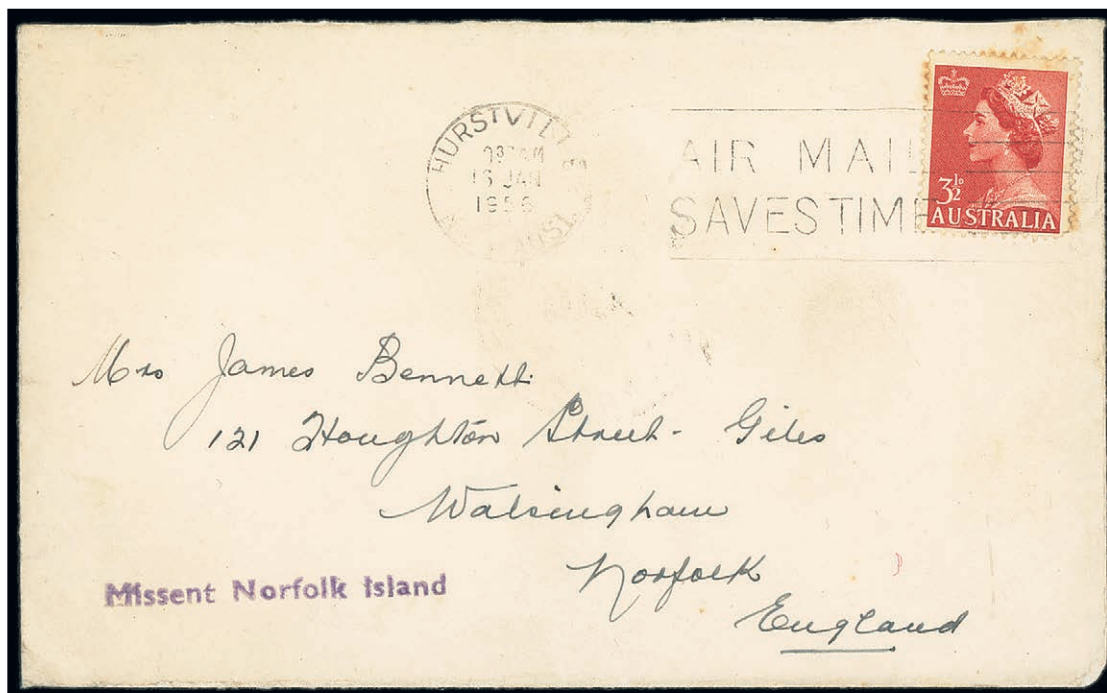 HURSTVILLE
16 JAN
1956
AIR MAIL
SAVES TIME
3½D
AUSTRALIA
Mrs James Bennett.
121 Houghton Street - Giles
Walsingham
Norfolk
England
Missent Norfolk Island